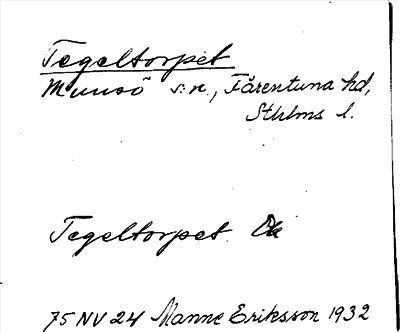 Tegeltorpet
Munsö s:n., Färentuna hd,
Sthlms l.
Tegeltorpet.
75 NV 24 Manne Eriksson 1932